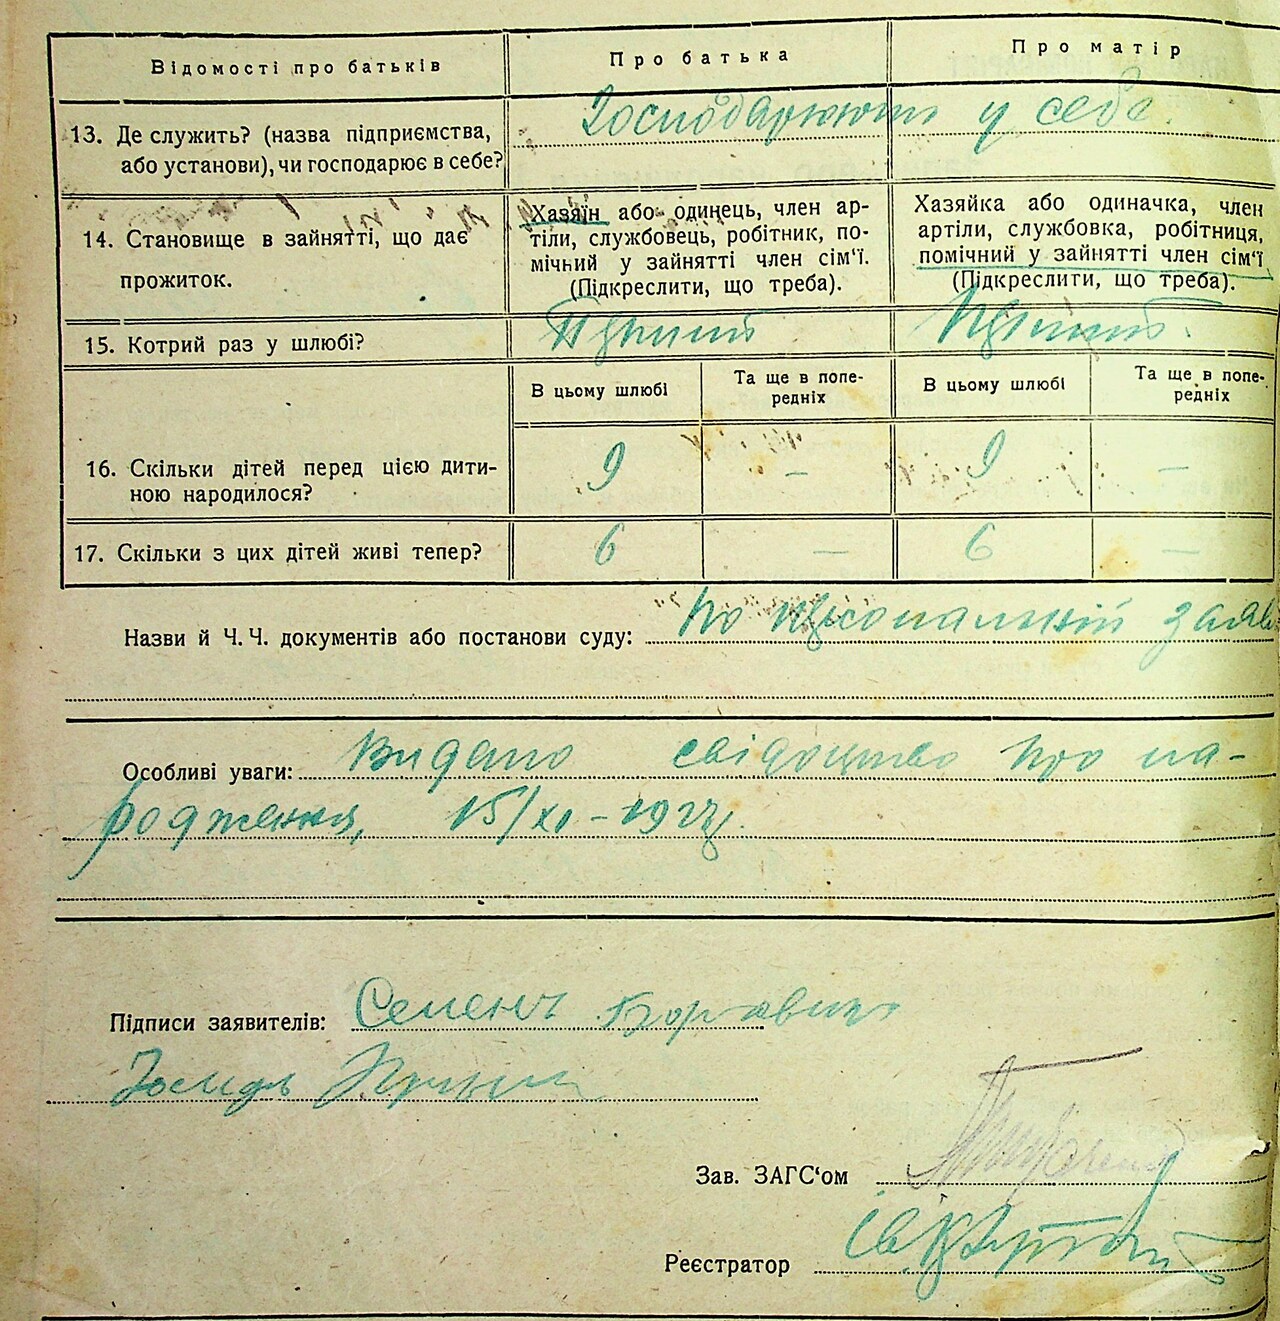 Відомості про батьків
Про батька
Про матір
13. Де служить? (назва підприємства,
або установи), чи господарює в себе?
Господарюють у себе.
14. Становище в зайнятті, що дає
прожиток.
Хазяїн або одинець, член ар-
тіли, службовець, робітник, по-
мічний у зайнятті член сім'ї.
(Підкреслити, що треба).
Хазяйка або одиначка, член
артіли, службовка, робітниця,
помічний у зайнятті член сім'ї
(Підкреслити, що треба).
15. Котрий раз у шлюбі?
В цьому шлюбі
Та ще в попе-
редніх
В цьому шлюбі
Та ще в попе-
редніх
16. Скільки дітей перед цією дити-
ною народилося?
9 — 9 —
17. Скільки з цих дітей живі тепер?
6 — 6 —
Назви й Ч. Ч. документів або постанови суду: по персональній заяві
Особливі уваги: Видано свідоцтво про на-
родження, 15/XI-1927р.
Підписи заявителів: Семен
Зав. ЗАГС'ом
Реєстратор